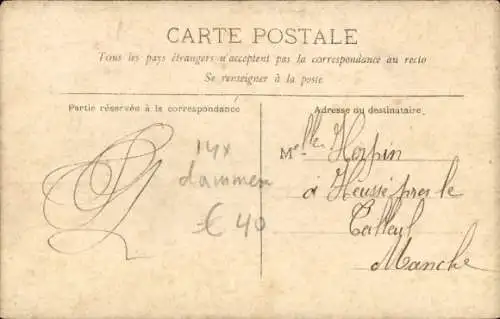 CARTE POSTALE
Tous les pays étrangers n'acceptent pas la correspondance au recto
Se renseigner à la poste
Partie réservée à la correspondance
Adresse du destinataire
14x
dammen
€ 40
Melle Horpin
à Heussé près le
Teilleul
Manche